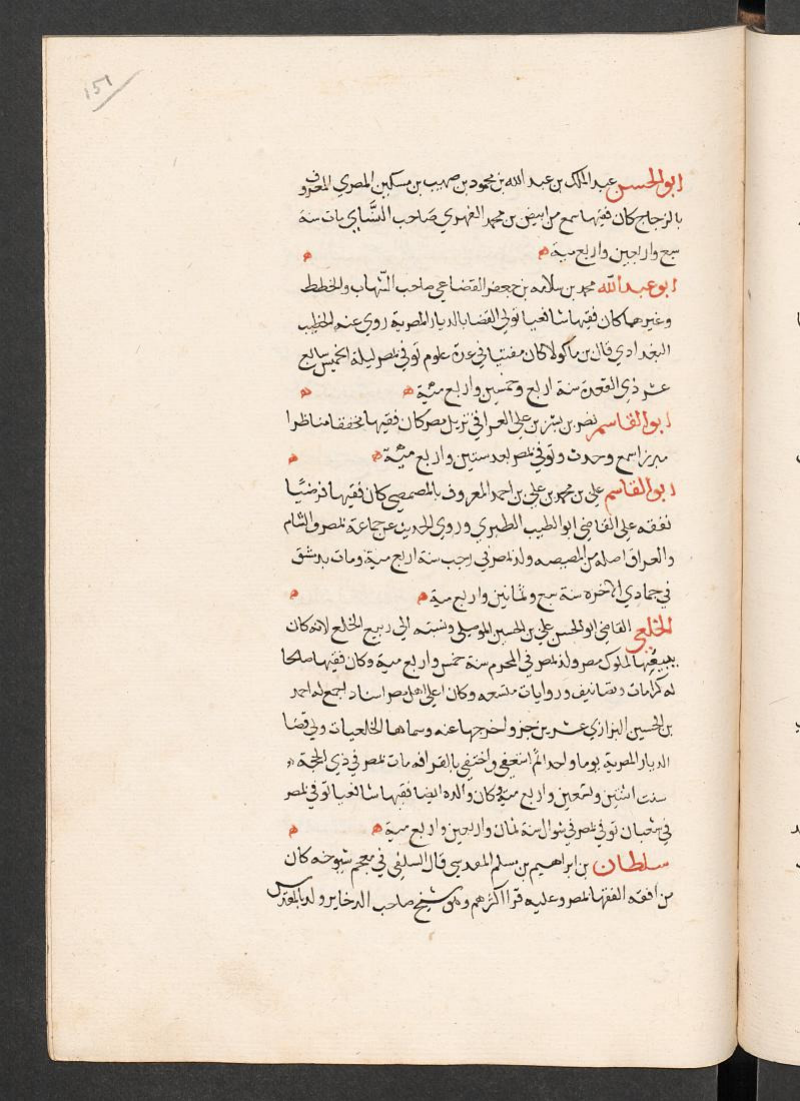 ١٥١
ابو الحسن عبد الملك بن عبد الله بن محمود بن صهيب بن مسكين المصري المعروف
بالزجاج كان فقيها سمع من ابيض بن محمد الفهري صاحب النساي مات سنة
سبع واربعين واربع مية
ابو عبد الله محمد بن سلامه بن جعفر القضاعي صاحب الشهاب والخطط
وغيرهما كان فقيها شافعيا تولى القضا بالديار المصرية روي عنه الخطيب
البغدادي قال بن ماكولا كان مفتيا في عدة علوم توفي بمصر ليلة الخميس سابع
عشر ذي القعدة سنة اربع وخمسين واربع مئية
ابو القاسم نصر بن بشر بن علي العراقي نزيل مصر كان فقيها محققا مناظرا
مبرزا سمع وحدث وتوفي بمصر بعد ستين واربع مئية
ابو القاسم علي بن محمد بن علي بن احمد المعروف بالمصيصي كان فقيها فرضيا
تفقه على القاضي ابو الطيب الطبري وروي الحديث عن جماعة بمصر والشام
والعراق اصله من المصيصه ولد بمصر في رجب سنة اربع مية ومات بدمشق
في جمادي الاخره سنة سبع وثمانين واربع مية
الخلعي القاضي ابو الحسن علي بن الحسين الموصلي ونسبته الي ربيع الخلع لانه كان
يبيعها لملوك مصر ولد بمصر في المحرم سنة خمس واربع مية وكان فقيها صلحا
له كرامات وتصانيف وروايات متسعه وكان اعلى اهل مصر اسناد لجمع له احمد
بن الحسين البزازي عشرين جزو اخرجها عنه وسماها الخلعيات ولي قضا
الديار المصرية يوما واحدا ثم استعفى واختفى بالقرافه مات بمصر في ذي الحجة
سنت اثنتين وتسعين واربع مية وكان والده ايضا فقيها شافعيا توفي بمصر
في شعبان توفي بمصر في شوال سنة ثمان واربعين واربع مية
سلطان بن ابراهيم بن مسلم المقدسي قال السلفي في معجم شيوخه كان
من افقه الفقها بمصر وعليه قرا اكثرهم وهو شيخ صاحب الدخاير ولد بالمقدس